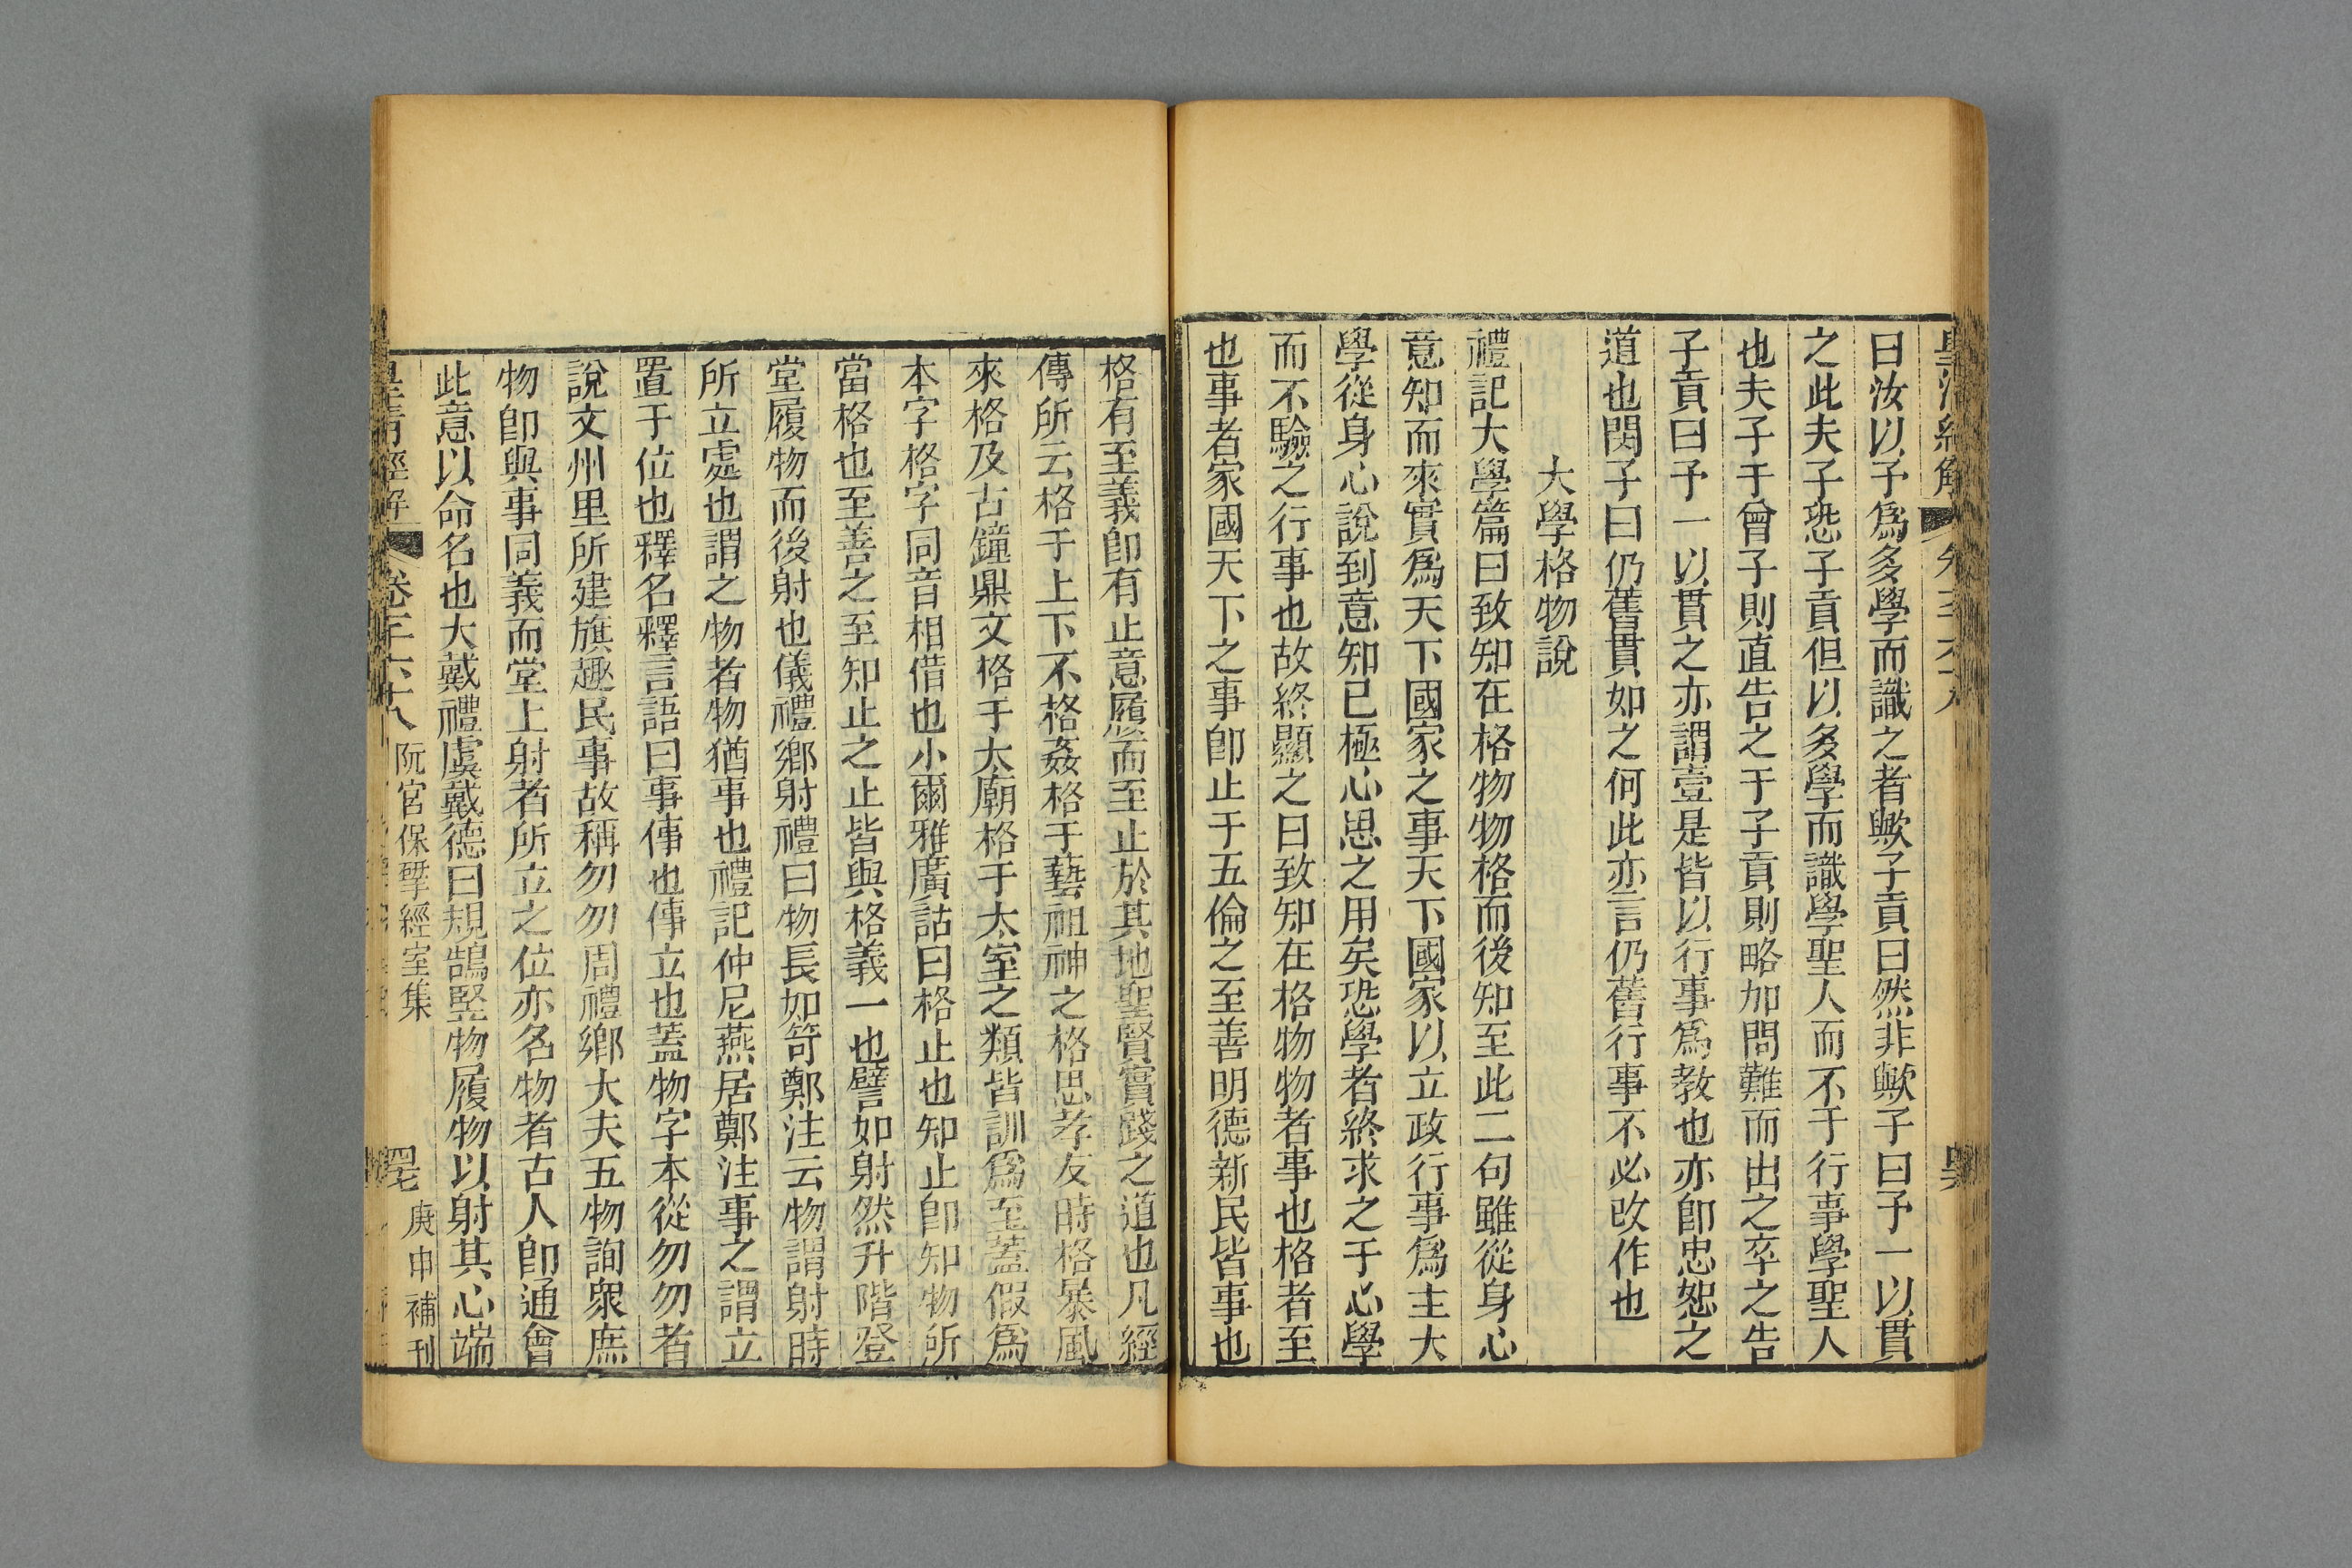 皇清經解
卷三六八
曰汝以予爲多學而識之者歟子貢曰然非歟子曰予一以貫
之此夫子恐子貢但以多學而識學聖人而不于行事學聖人
也夫子于曾子則直告之于子貢則略加問難而出之卒之告
子貢曰予一以貫之亦謂壹是皆以行事爲教也亦卽忠恕之
道也閔子曰仍舊貫如之何此亦言仍舊行事不必改作也
大學格物說
禮記大學篇曰致知在格物物格而後知至此二句雖從身心
意知而來實爲天下國家之事天下國家以立政行事爲主大
學從身心說到意知已極心思之用矣恐學者終求之于心學
而不驗之行事也故終顯之曰致知在格物物者事也格者至
也事者家國天下之事卽止于五倫之至善明德新民皆事也
格有至義卽有止意履而至止於其地聖賢實踐之道也凡經
傳所云格于上下不格姦格于藝祖神之格思孝友時格暴風
來格及古鐘鼎文格于太廟格于太室之類皆訓爲至蓋假爲
本字格字同音相借也小爾雅廣詁曰格止也知止卽知物所
當格也至善之至知止之止皆與格義一也譬如射然升階登
堂履物而後射也儀禮鄉射禮曰物長如笴鄭注云物謂射時
所立處也謂之物者物猶事也禮記仲尼燕居鄭注事之謂立
置于位也釋名釋言語曰事倳也倳立也蓋物字本從勿勿者
說文州里所建旗趣民事故稱勿勿周禮鄉大夫五物詢衆庶
物卽與事同義而堂上射者所立之位亦名物者古人卽通會
此意以命名也大戴禮虞戴德曰規鵠竪物履物以射其心端
皇清經解
卷千六十八
阮宮保揅經室集
罡
庚申補刊